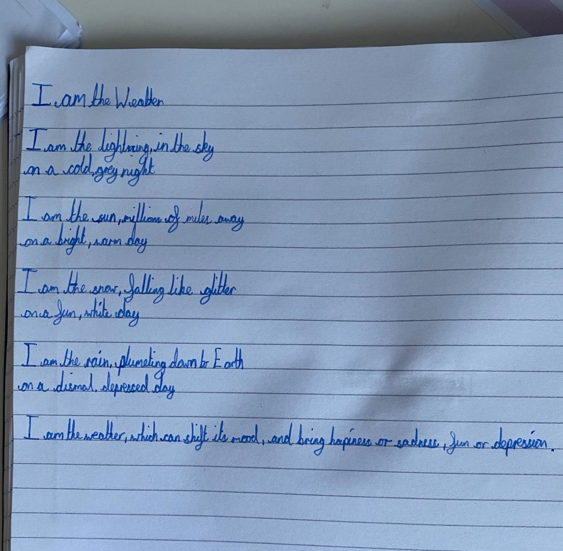 I am the Weather
I am the lightning, in the sky
on a cold, grey night
I am the sun, millions of miles away
on a bright, warm day
I am the snow, falling like glitter
on a fun, white day
I am the rain, plumeting down to Earth
on a dismal, depressed day
I am the weather, which can shift its mood, and bring hapiness or sadness, fun or depression.